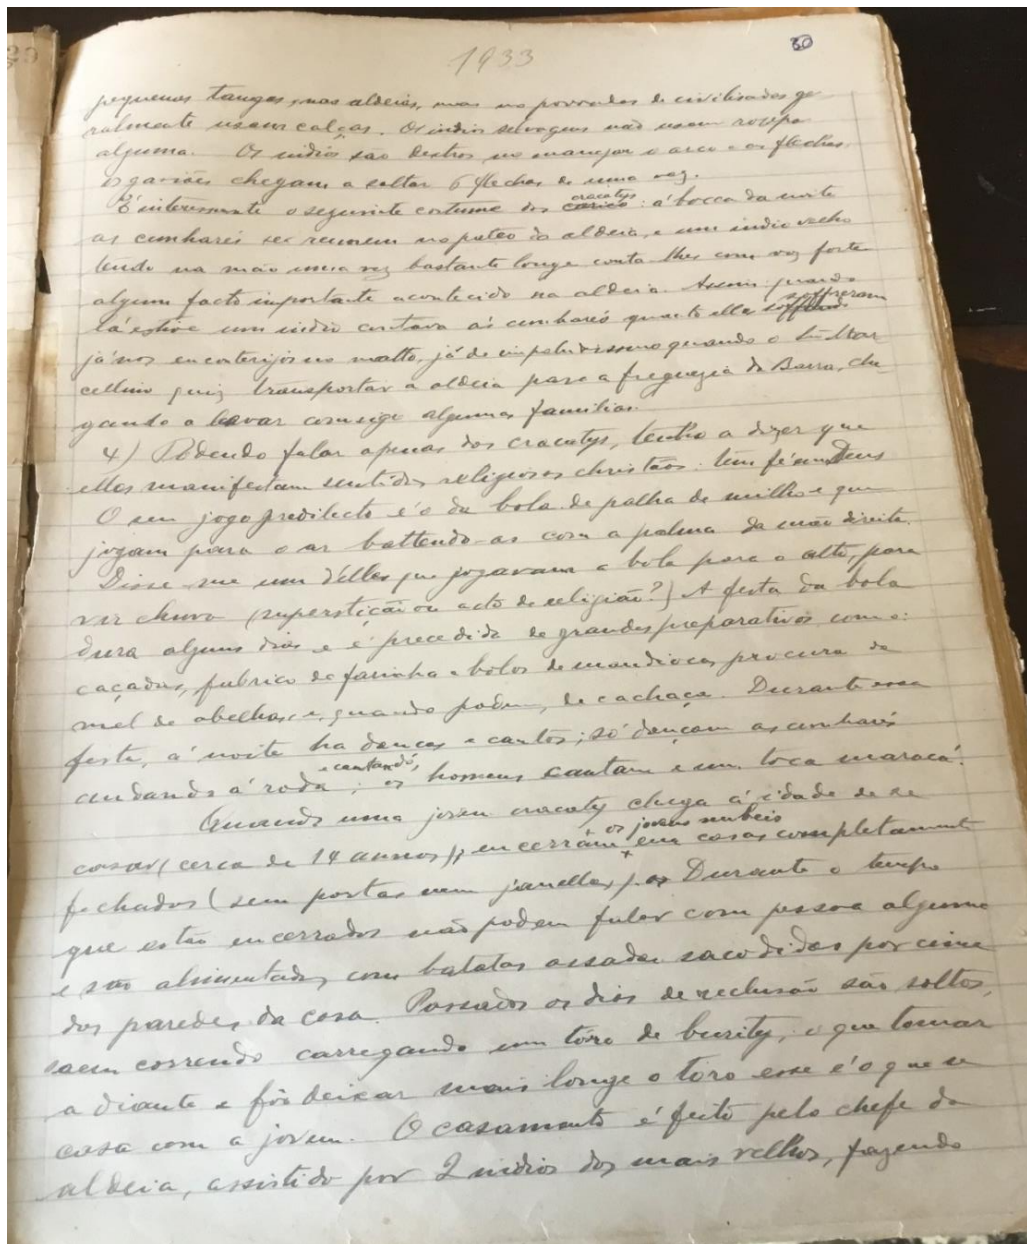 1933
30
pequenas tangas, nas aldeias, mas nos povoados de civilisados ge-
ralmente usam calças. Os indios selvagens não usam roupa
alguma. Os indios são dextros no manejar o arco e as flechas.
Os gaviões chegam a soltar 6 flechas de uma vez.
É interessante o seguinte costume dos cracatys: á bocca da noite
as cunharés se reunem no pateo da aldeia, e um indio velho
tendo na mão uma vez bastante longe conta-lhes com voz forte
algum facto importante acontecido na aldeia. Assim quando
lá estive um indio contava ás cunharés quanto elles soffreram
já nos esconderijos no matto, já de impaludismo quando o
cellino quiz transportar a aldeia para a freguezia da Barra, che-
gando a levar comsigo algumas familias.
4) Podendo falar apenas dos cracatys, tenho a dizer que
elles manifestam sentidos religiosos christãos: têm fé em Deus
O seu jogo predilecto é o da bola de palha de milho e que
jogam para o ar battendo-as com a palma da mão direita.
Disse-me um d'elles que jogavam a bola para o alto, para
vir chuva (superstição ou acto de religião?) A festa da bola
dura alguns dias e é precedida de grandes preparativos, como:
caçadas, fabrico de farinha e bolos de mandioca, procura de
mel de abelhas, e, quando podem, de cachaça. Durante essa
festa, á noite ha danças e cantos; só dançam as cunharés
andando á roda e cantando; os homens cantam e um toca maracá.
Quando uma joven cracaty chega á idade de se
casar (cerca de 14 annos), encerram os jovens nubeis em casas completamente
fechadas (sem portas nem janellas). Durante o tempo
que estão encerrados não podem falar com pessoa alguma
e são alimentados com batatas assadas sacodidas por cima
das paredes da casa. Passados os dias de reclusão são soltos,
saem correndo carregando um tóro de burity, o que tomar
a diante e fôr deixar mais longe o toro esse é o que se
casa com a joven. O casamento é feito pelo chefe da
aldeia, assistido por 2 indios dos mais velhos, fazendo